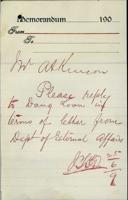 Memorandum 190
From
To
Mr Atkinson
Please reply
to Dang Loon in
terms of letter from
Dept of External Affairs
25/6/9